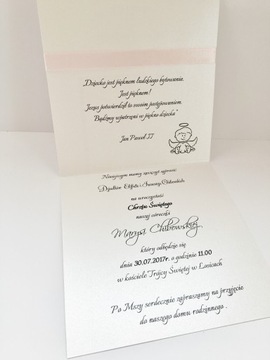 „Dziecko jest pięknem ludzkiego bytowania.
Jest pięknem!
Jezus potwierdził to swoim postępowaniem.
Bądźmy wpatrzeni w piękno dziecka"
Jan Paweł II
mamy zaszczyt zaprosić
na uroczystość
Chrztu Świętego
naszej córeczki
Marysi
który odbędzie się
dnia 30.07.2017r. o godzinie 11.00
w kościele Trójcy Świętej w
Po Mszy serdecznie zapraszamy na przyjęcie
do naszego domu rodzinnego .